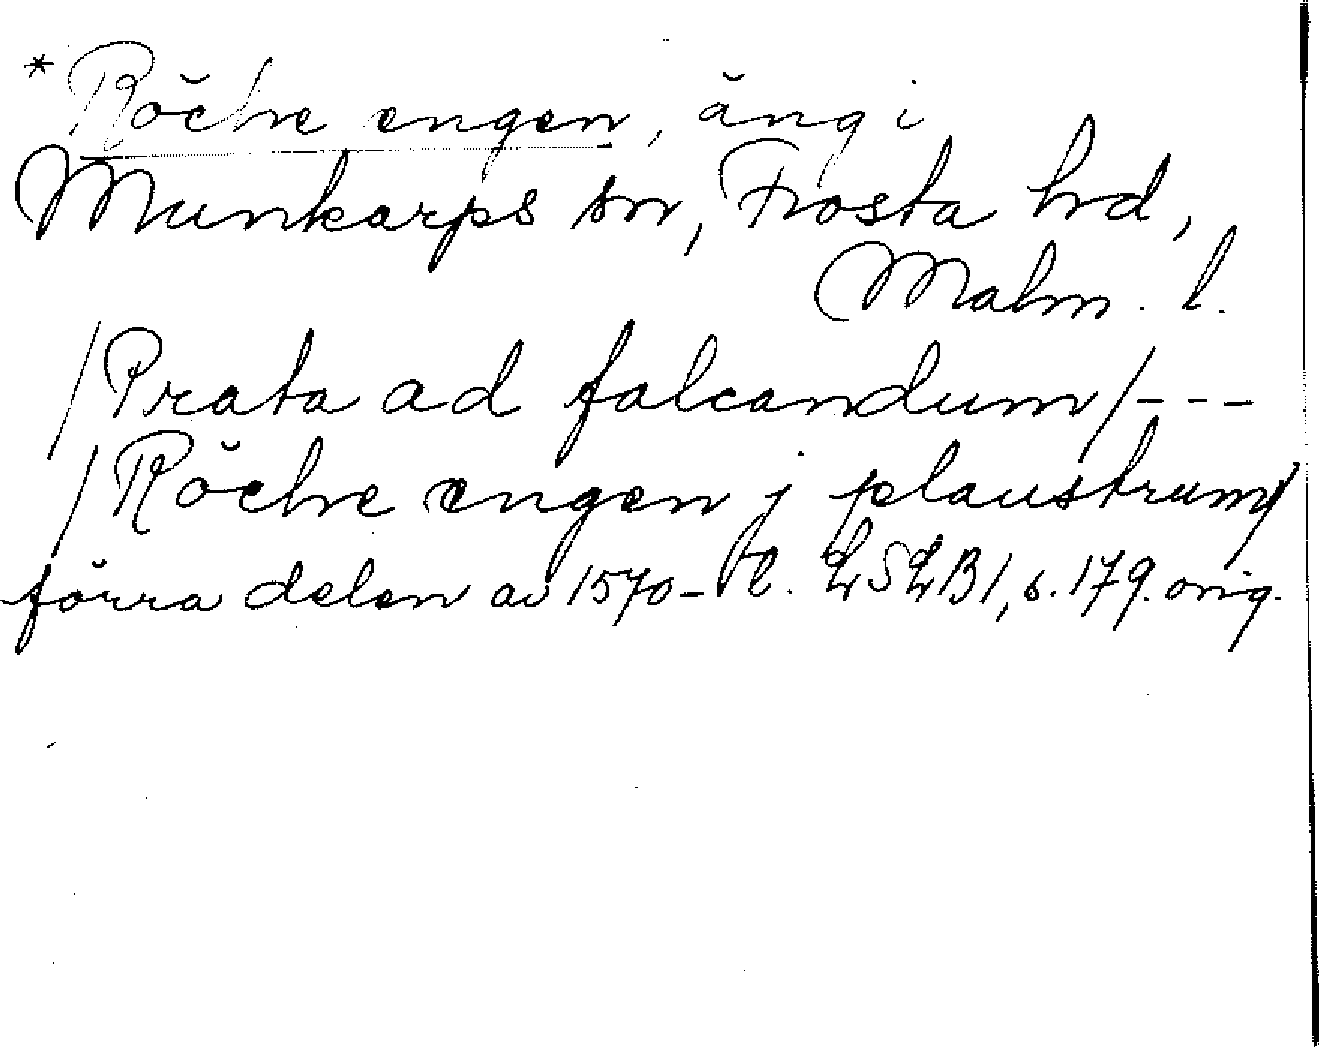 * Röche engen, äng i
Munkarps sn, Frosta hd,
Malm. l.
/Prata ad falcandum/---
/Röche engen j plaustrum/
förra delen av 1570-t. LSLB1, s. 179. orig.